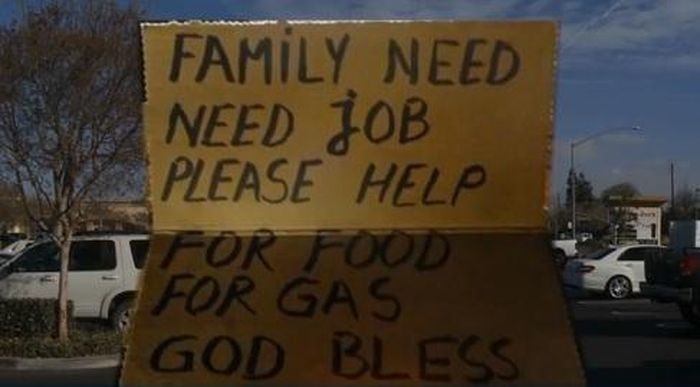 FAMiLY NEED
NEED JOB
PLEASE HELP
FOR FOOD
FOR GAS
GOD BLESS